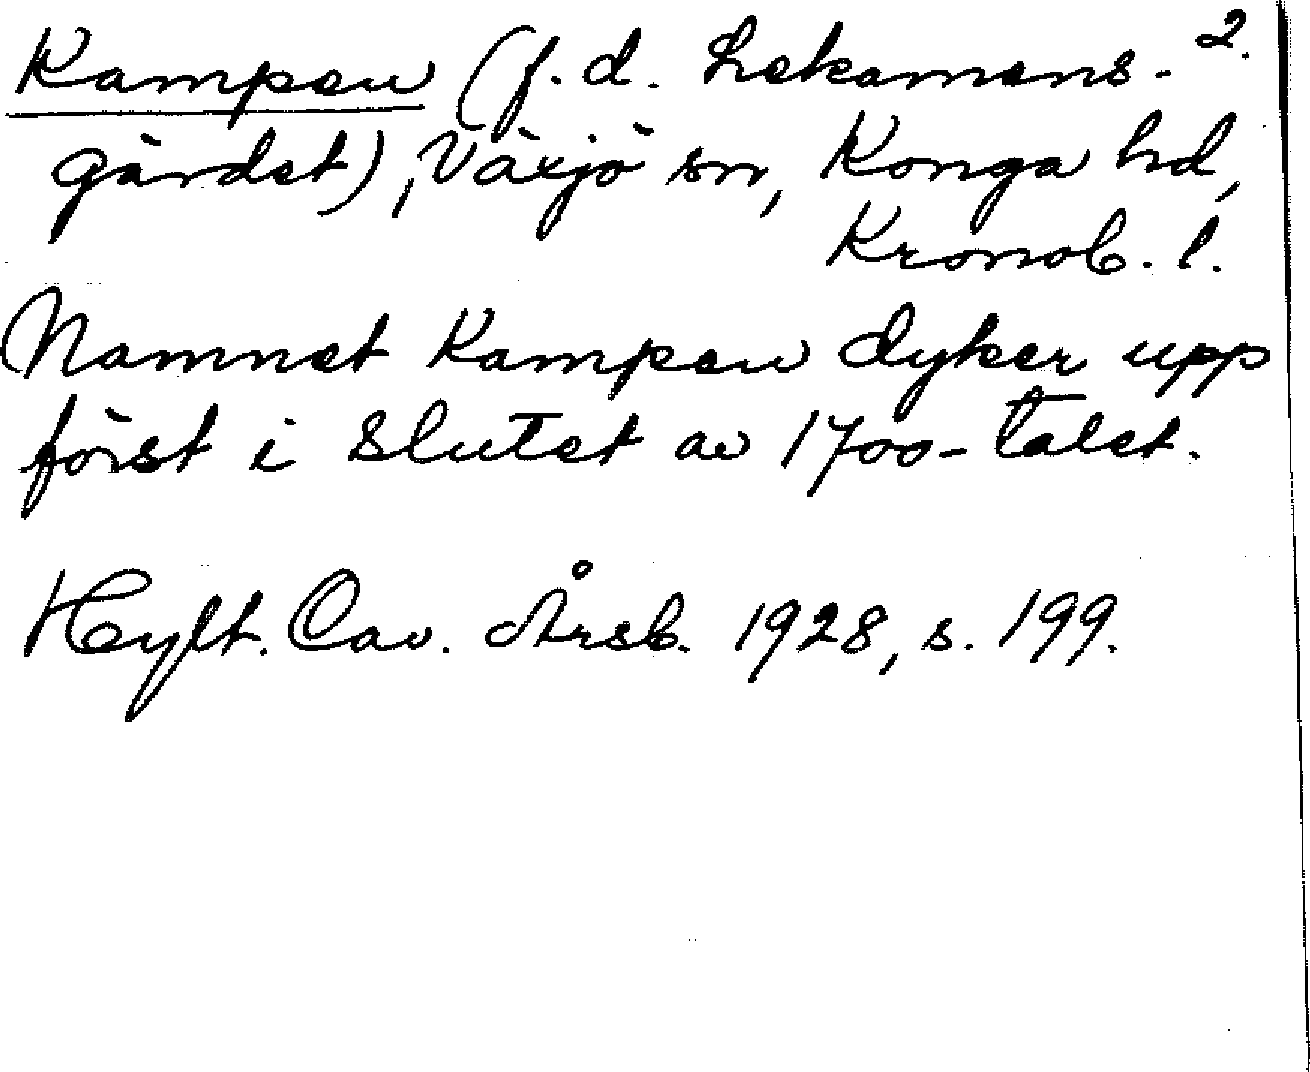 Kampen (f.d. Lekamens- 2.
gärdet), Växjö sn, Konga hd,
Kronob. l.
Namnet Kampen dyker upp
först i slutet av 1700-talet.
Hylt. Cav. Årsb. 1928, s. 199.